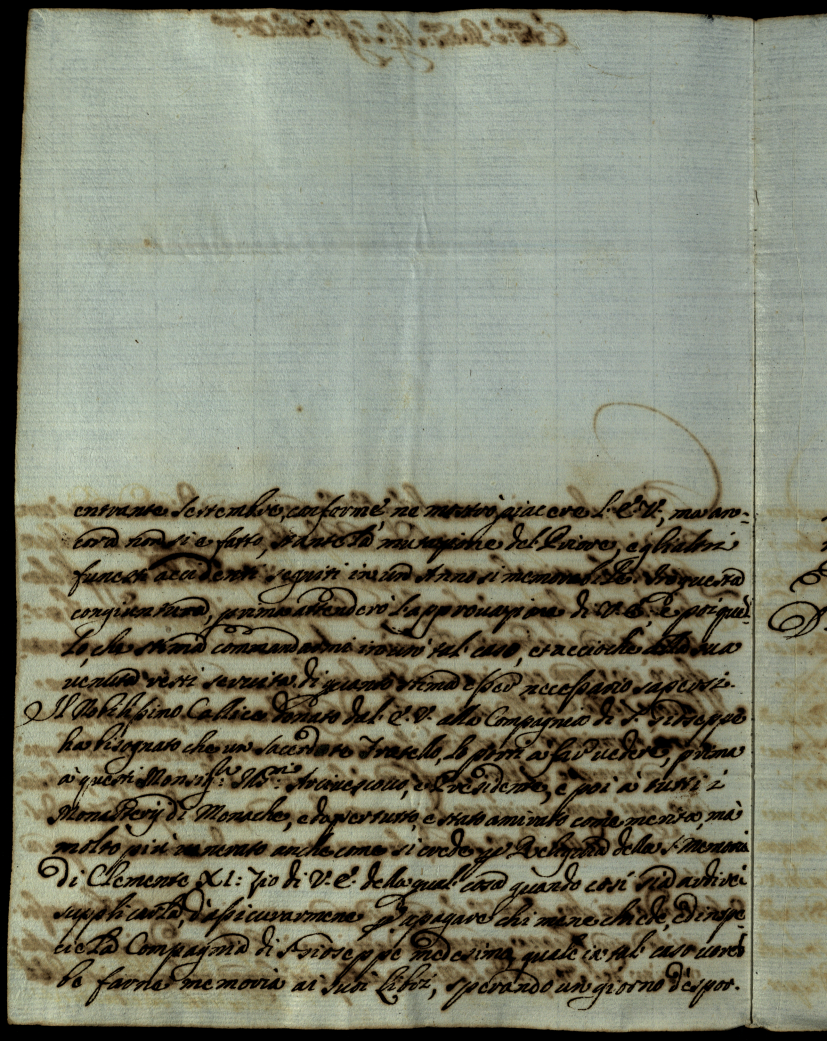 entrante settembre, conforme, ne mostrò piacere l'E. V., ma an-
cora non si è fatto, stante la mutazione del Priore, e gli altri
funesti accidenti seguiti in un Anno si memorabile. In questa
congiuntura, prima attenderò l'approvazione di V. E., e poi quel-
lo, che stimerà commandarmi in tal caso, et acciochè della sua
venuta resti servita di quanto stima esser necessario sapersi.
Il Nobilissimo Calice donato dal E. V. alla Compagnia di S. Gioseppe
ha bisognato che un Sacerdote Fratello, lo porti a far vedere, prima
à questi Monsig.ri Ill.mi Arcivescovo, e Presidente, e poi à tutti i
Monasterij di Monache, e dapertutto, è stato amirato come merita, mà
molto più venerato anche come si crede p Reliquia della S. Memoria
di Clemente XI: Zio di V. E. della qual cosa quando così sia ardirei
supplicarla, d'assicurarmene p apagare chi mene chiede, ed in spe-
cie la Compagnia di S. Gioseppe medesima, quale in tal caso vareb-
be farne memoria ai suoi Libri, sperando un giorno d'espor-